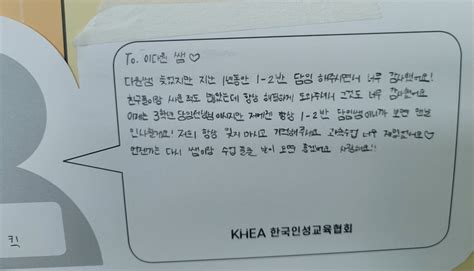 To. 이다원 쌤♡
다원쌤 지난 1년동안 1-2반 담임 해주시면서 너무 감사했어요!
친구들이랑 싸운 적도 많았는데 항상 해결하게 도와주셔서 그것도 너무 감사했어요
이제는 3학년 담임선생님 저에겐 항상 1-2반 담임쌤이니까 보면 맨날
인사할게요! 저희 항상 잊지 마시고 기억해주세요 수업 너무 재밌었어요♡
언젠가는 다시 쌤이랑 수업 날이 오면 좋겠어요 사랑해요!!
KHEA 한국인성교육협회
킥